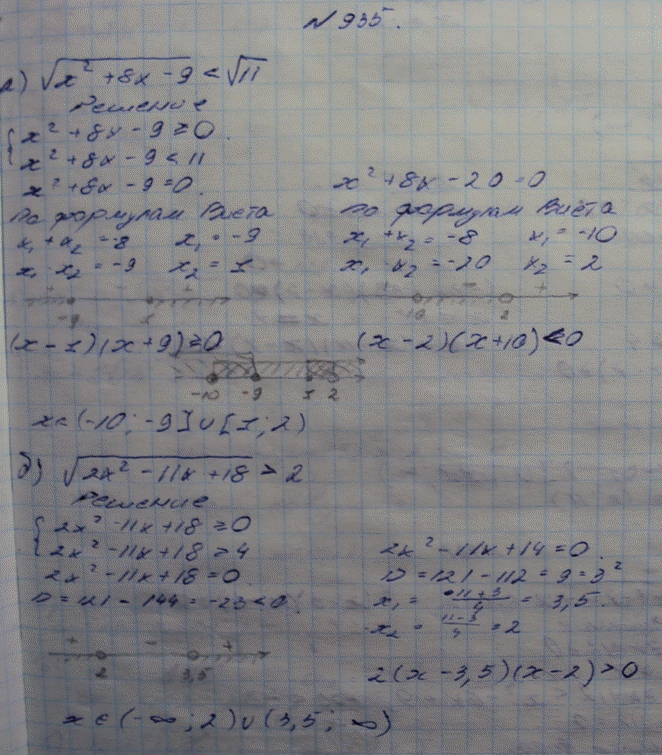 № 935.
а) √(x² + 8x - 9) < √11
Решение
{ x² + 8x - 9 ≥ 0.
{ x² + 8x - 9 < 11
x² + 8x - 9 = 0.
По формулам Виета
x₁ + x₂ = -8 x₁ = -9
x₁ · x₂ = -9 x₂ = 1
+ - +
-9 1
(x - 1)(x + 9) ≥ 0
x² + 8x - 20 = 0
По формулам Виета
x₁ + x₂ = -8 x₁ = -10
x₁ · x₂ = -20 x₂ = 2
+ - +
-10 2
(x - 2)(x + 10) < 0
-10 -9 1 2
x ∈ (-10; -9] ∪ [1; 2)
б) √(2x² - 11x + 18) > 2
Решение
{ 2x² - 11x + 18 ≥ 0
{ 2x² - 11x + 18 > 4
2x² - 11x + 18 = 0.
D = 121 - 144 = -23 < 0.
2x² - 11x + 14 = 0.
D = 121 - 112 = 9 = 3²
x₁ = (11 + 3)/4 = 3,5.
x₂ = (11 - 3)/4 = 2
+ - +
2 3,5
2(x - 3,5)(x - 2) > 0
x ∈ (-∞; 2) ∪ (3,5; ∞)